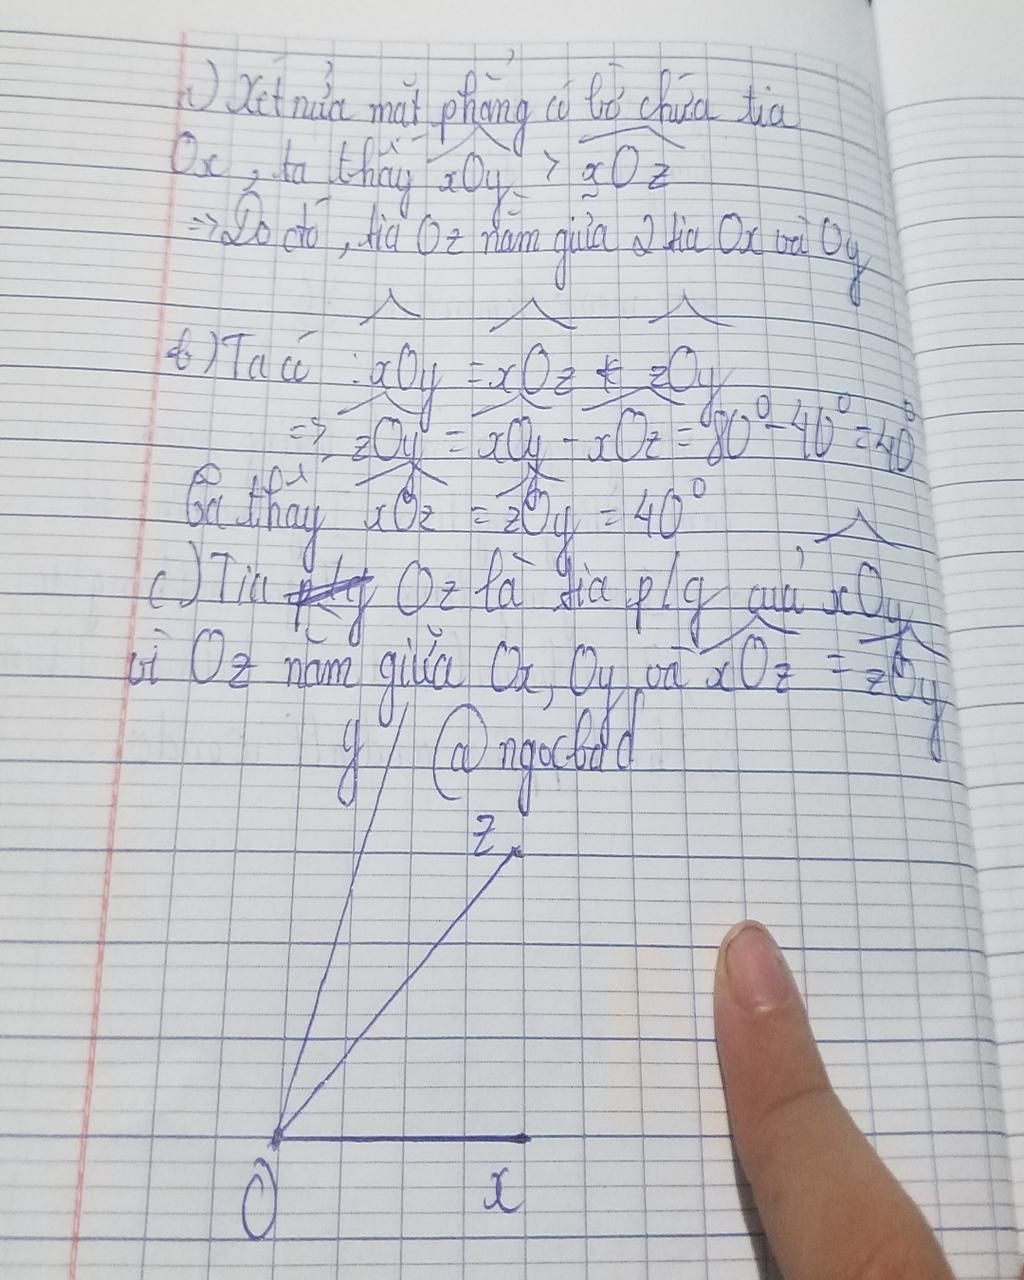 a) Xét nửa mặt phẳng có bờ chứa tia
Ox, ta thấy xOy > xOz
=> Do đó, tia Oz nằm giữa 2 tia Ox và Oy
b) Ta có : xOy = xOz + zOy
=> zOy = xOy - xOz = 80° - 40° = 40°
Ta thấy xOz = zOy = 40°
c) Tia Oz là tia p/g của xOy
vì Oz nằm giữa Ox, Oy và xOz = zOy
y @ngocbdd
z
O x